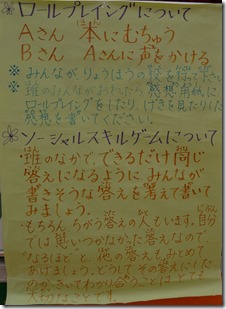 ロールプレイングについて
Aさん 本にむちゅう
Bさん Aさんに声をかける
※ みんながりょうほうの役を
※ 班のみんなが 感想用紙に
ロールプレイングをしたり、げきを見たりした
感想を書いてください。
ソーシャルスキルゲームについて
班のなかで、できるだけ同じ
答えになるように みんなが
書きそうな答えを考えて書いて
みましょう。
もちろん ちがう答えの人もいます。自分
では思いつかなかった答えなので、
「なるほど」と 他の答えもみとめて
あげましょう。どうして その答えにした
のか、きいてわかり合うことはとても
大切なことです。